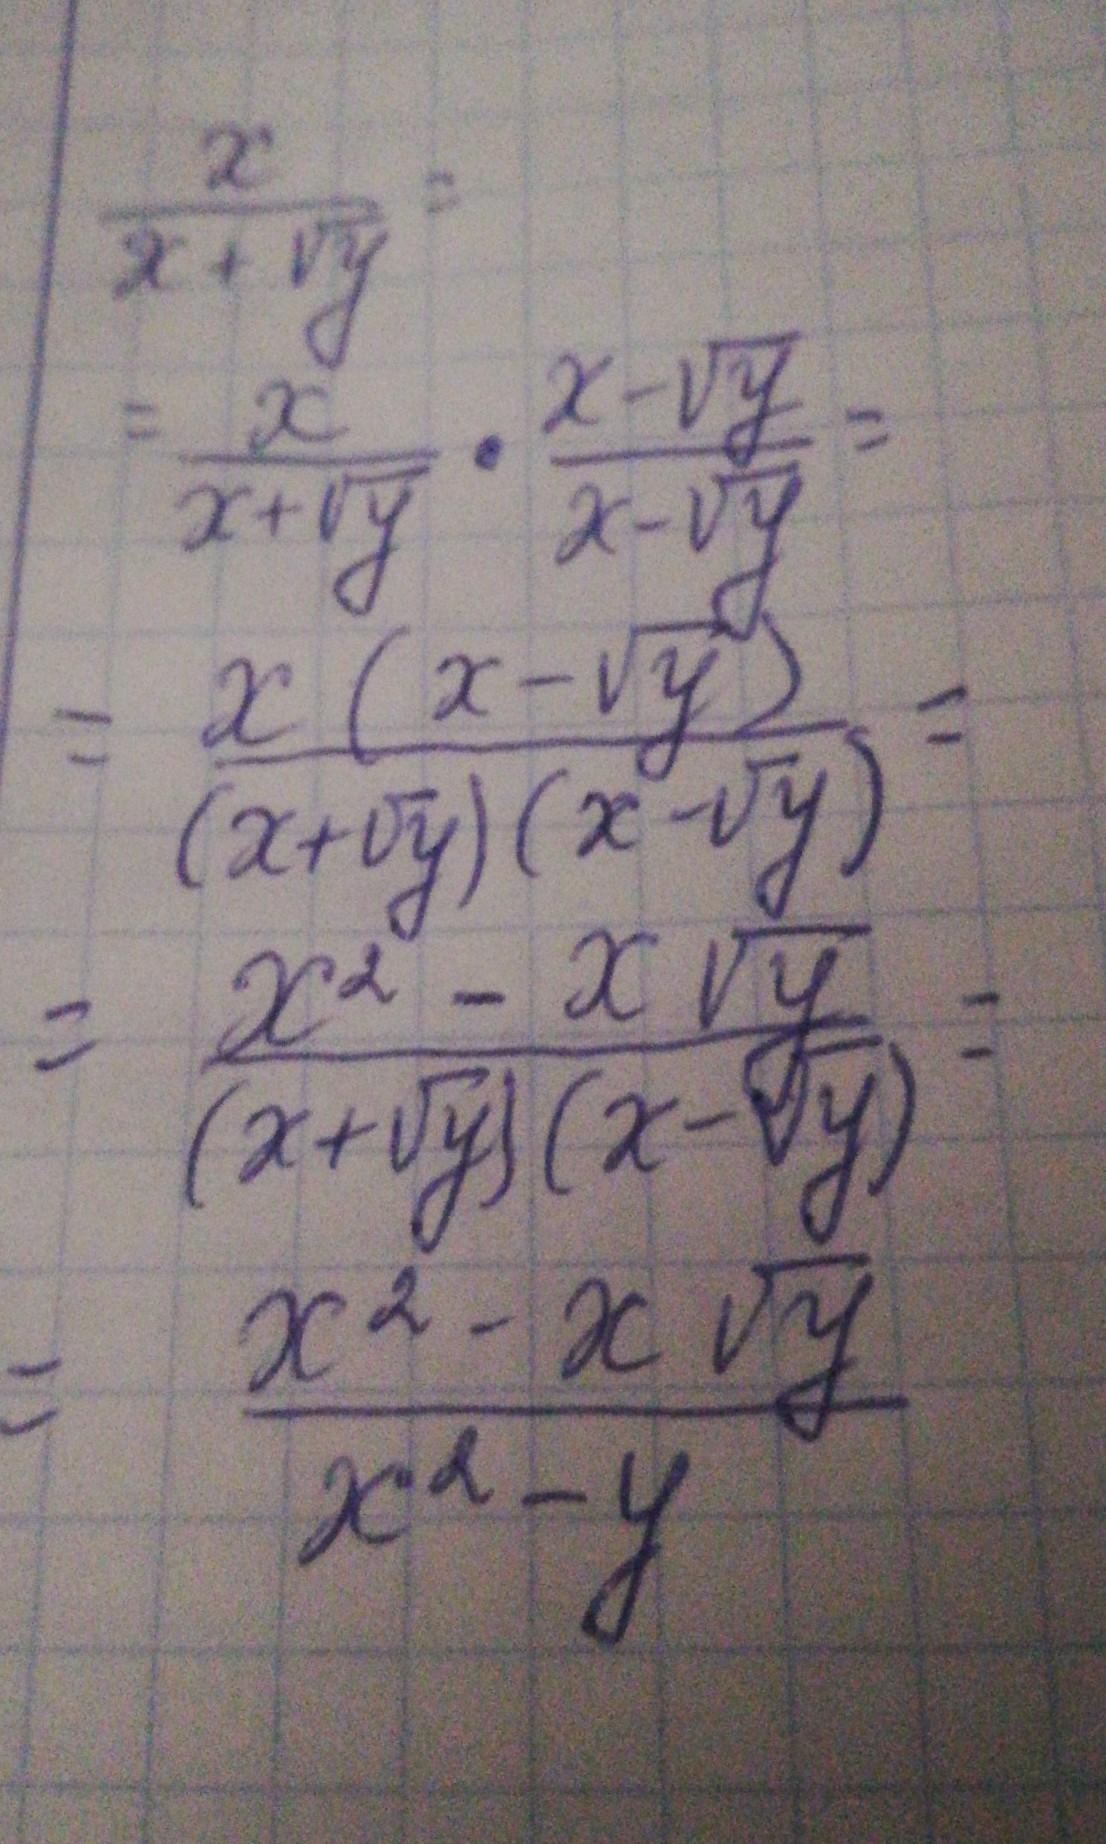 x/(x+√y) =
= x/(x+√y) · (x-√y)/(x-√y) =
= x(x-√y)/((x+√y)(x-√y)) =
= (x²-x√y)/((x+√y)(x-√y)) =
= (x²-x√y)/(x²-y)